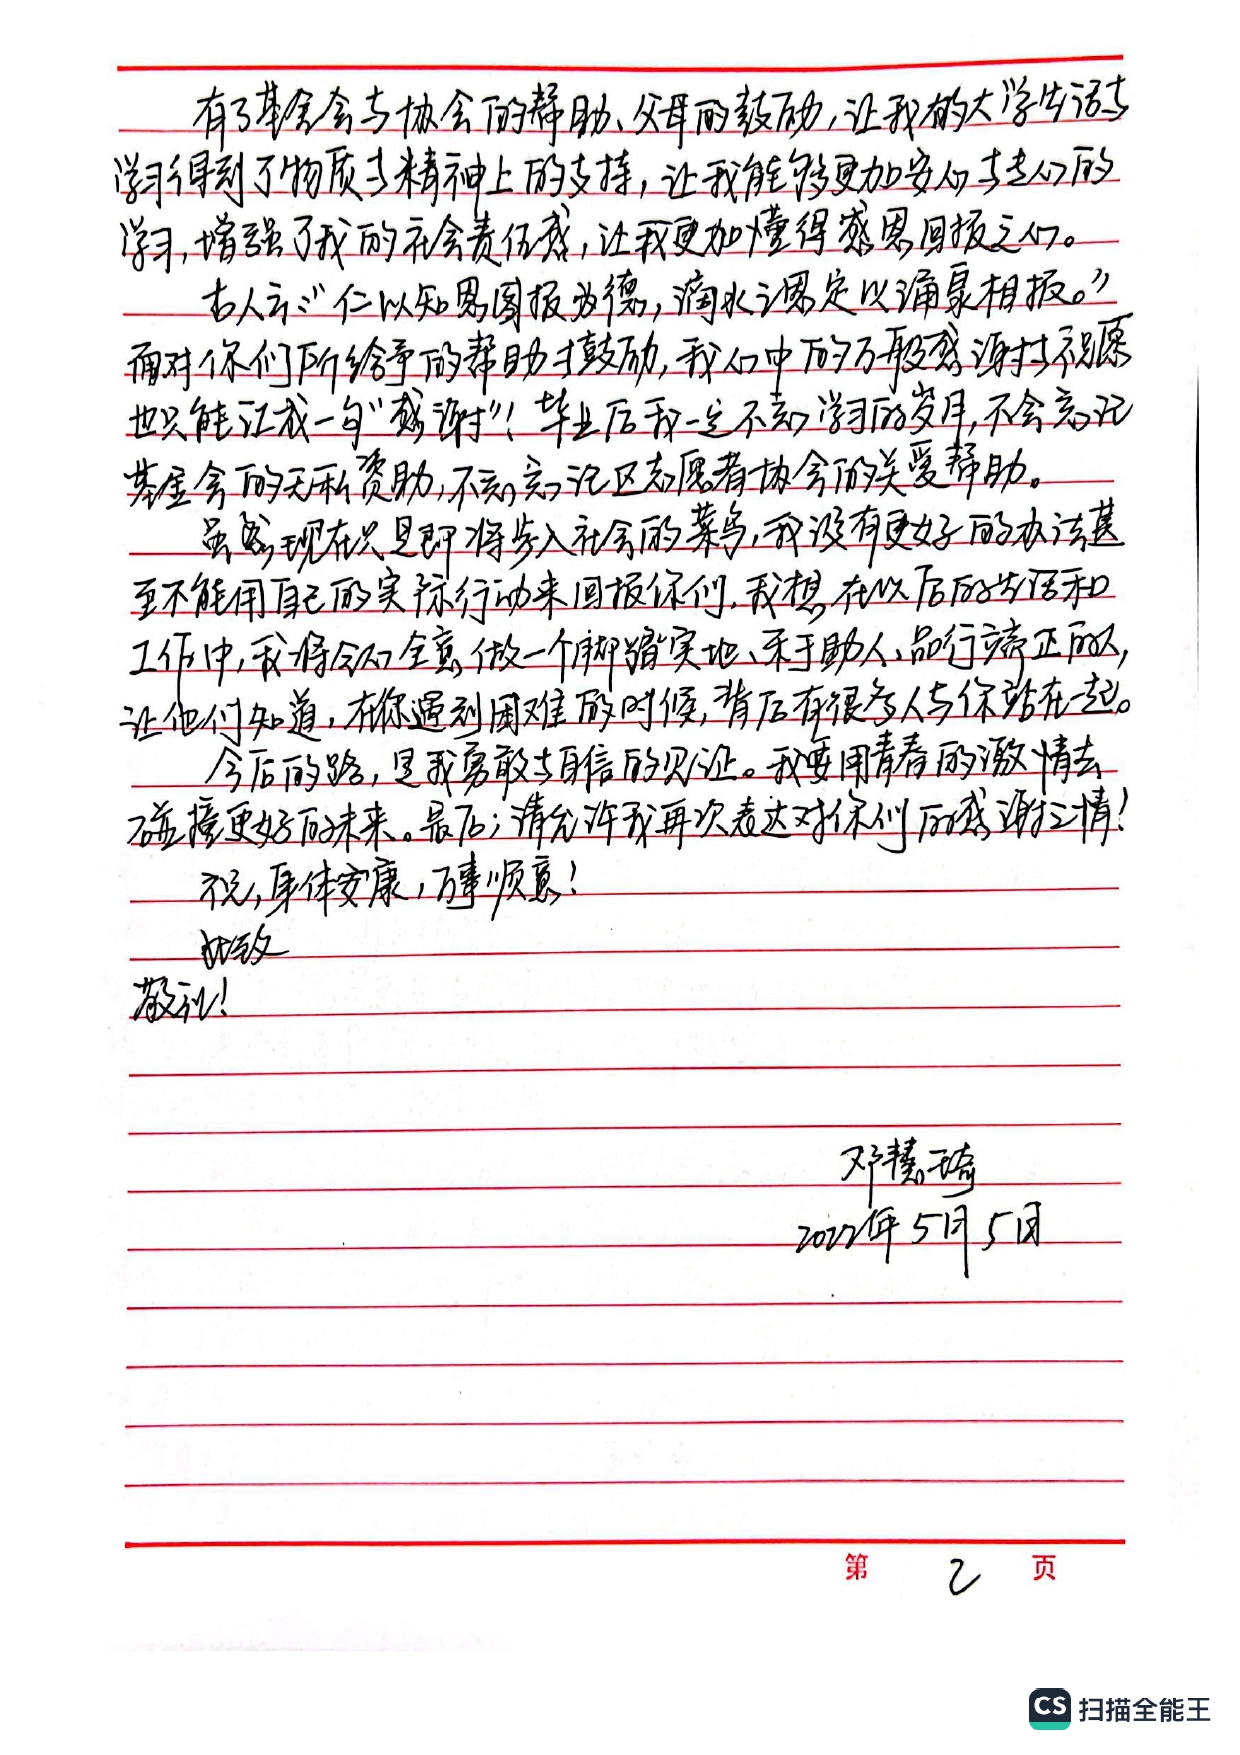 有了基金会与协会的帮助、父母的鼓励，让我的大学生活与
学习得到了物质与精神上的支持，让我能够更加安心与专心的
学习，增强了我的社会责任感，让我更加懂得感恩回报之心。
古人云：“仁以知恩图报为德，滴水之恩定以涌泉相报。”
面对你们所给予的帮助与鼓励，我心中的万般感谢与祝愿
也只能让成一句“感谢”！毕业后我一定不忘学习的岁月，不会忘记
基金会的无私资助，不忘忘记区志愿者协会的关爱帮助。
虽然现在只是即将步入社会的菜鸟，我没有更好的办法甚
至不能用自己的实际行动来回报你们，我想在以后的生活和
工作中，我将会以全意做一个脚踏实地、乐于助人、品行端正的人，
让他们知道，在你遇到困难的时候，背后有很多人与你站在一起。
今后的路，是我勇敢与自信的见证。我要用青春的激情去
碰撞更好的未来。最后；请允许我再次表达对你们的感谢之情！
祝，身体安康，万事顺意！
此致
敬礼！
邓慧琦
2022年5月5日
第 2 页
CS 扫描全能王